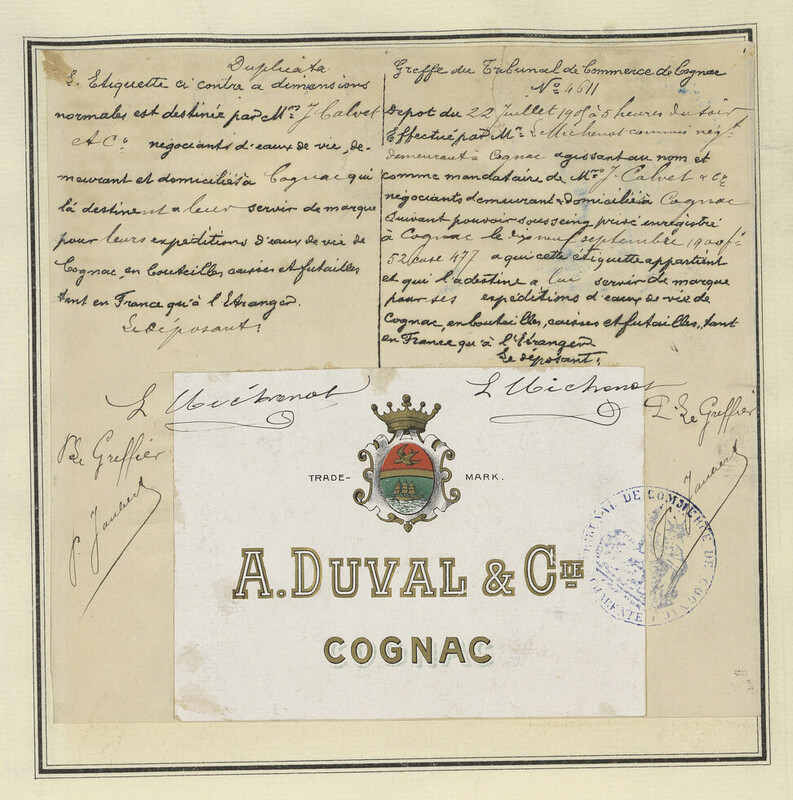 Duplicata
L'Etiquette ci contre a dimensions
normales est destinée par Mrs J Calvet
& Co négociants d'eaux de vie, de-
meurant et domiciliés à Cognac qui
la destinent a leur servir de marque
pour leurs expéditions d'eaux de vie de
Cognac, en bouteilles caisses et futailles
tant en France qu'à l'Etranger.
Le Déposant:
Greffe du Tribunal de Commerce de Cognac
No 4611
Depot du 22 Juillet à 5 heures du soir
Effectué par Mr L Michenot commis négt
demeurant à Cognac agissant au nom et
comme mandataire de Mrs J. Calvet & Co
négociants demeurant & domiciliés à Cognac
suivant pouvoir sous seing privé enregistré
à Cognac le dix neuf septembre 1900 fo
52 case 477 a qui cette étiquette appartient
et qui la destine a lui servir de marque
pour ses expéditions d'eaux de vie de
Cognac, en bouteilles, caisses et futailles, tant
en France qu'à l'Etranger
Le déposant:
L Michenot
L Michenot
P. Le Greffier
P. Le Greffier
P. Jaubert
Jaubert
TRADE-MARK.
TRIBUNAL DE COMMERCE DE COGNAC
CHARENTE
A. DUVAL & CIE
COGNAC